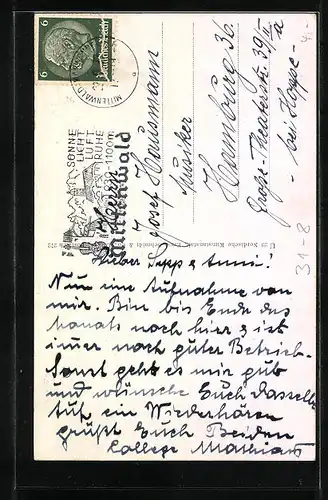 6
6
Deutsches Reich
MITTENWALD
SONNE
LICHT
LUFT
RUHE
920-1100m
Mittenwald
Herrn
Josef Hausmann
Musiker
Hamburg 36.
Große-Theaterstr. 39/II
bei Hoppe
31-8
4.-
Lieber Sepp & Anni!
Nun eine Aufnahme von
mir. Bin bis Ende des
Monats noch hier & ist
imer noch guter Betrieb.
Sonst geht es mir gut
und wünsche Euch dasselbe
Auf ein Wiederhören
grüßt Euch Beiden
College Mathias